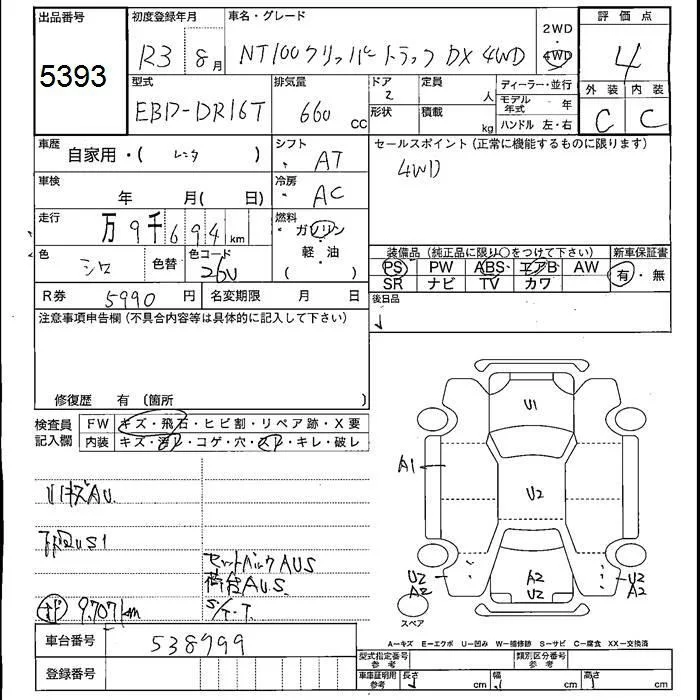 出品番号
5393
初度登録年月
R3 8月
車名・グレード
NT100クリッパートラック DX 4WD
2WD
・
4WD
評価点
4
外装 内装
C C
型式
EBD-DR16T
排気量
660 CC
ドア
2
定員
人
形状
積載
kg
ディーラー・並行
モデル年式 年
ハンドル 左・右
車歴
自家用・( レンタ )
シフト
AT
セールスポイント(正常に機能するものに限ります)
4WD
車検
年 月( 日)
冷房
AC
走行
万9千694km
燃料
ガソリン
・
軽・油
( )
色
シロ
色替
色コード
26U
装備品(純正品に限り○をつけて下さい)
PS PW ABS エアB AW
SR ナビ TV カワ
新車保証書
有・無
R券 5990円
名変期限 月 日
後日品
注意事項申告欄(不具合内容等は具体的に記入して下さい)
修復歴 有〔箇所 〕
検査員
記入欄
FW キズ・飛石・ヒビ割・リペア跡・X要
内装 キズ・汚レ・コゲ・穴・スレ・キレ・破レ
キズAU
US1
セットバックAUS
荷台AUS
S/T.T.
9707km
車台番号
538999
登録番号
U1
A1
U2
A2
U2
U2
A2
U2
A2
スペア
A−キズ E−エクボ U−凹み W−補修跡 S−サビ C−腐食 XX−交換済
型式指定番号
参考
類別区分番号
参考
車庫証明用
参考
長さ cm
幅 cm
高さ cm